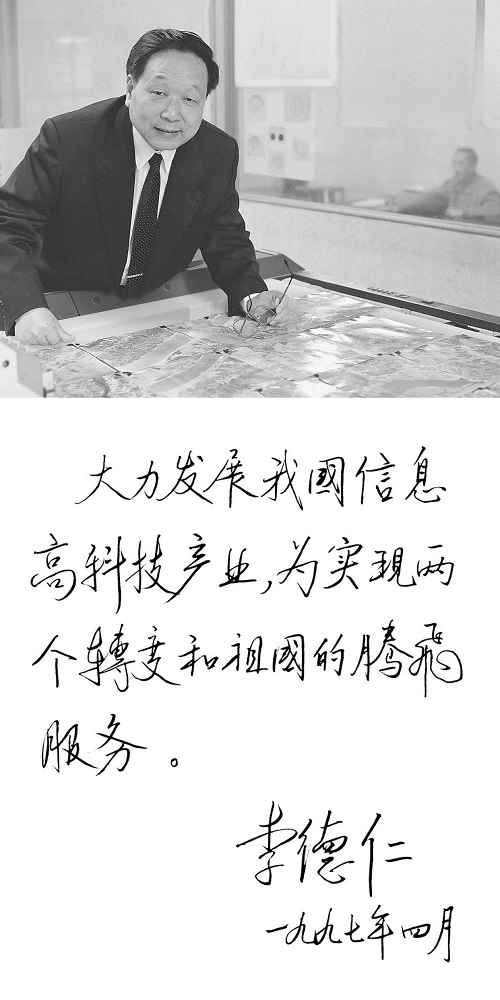 大力发展我國信息
高科技产业,为实现两
个轉度和祖國的腾飛
服务。
李德仁
一九九七年四月